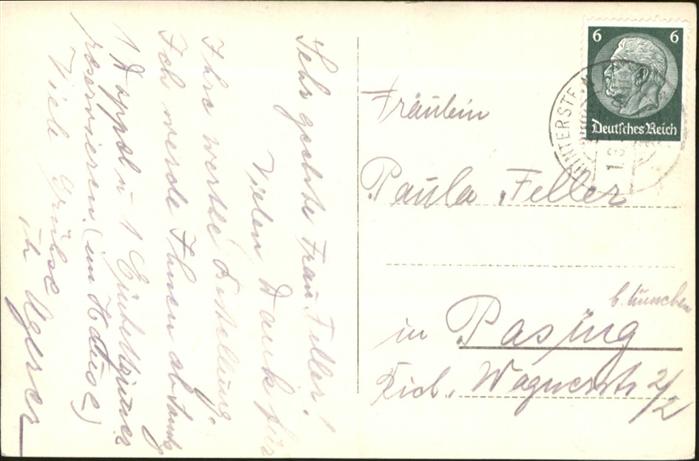 Sehr geehrte Frau Feller!
Vielen Dank für
Ihre werte Bestellung.
Ich werde Ihnen ab
1 Doppel u. 1 Einbettzimmer
reservieren (im Hause)
Viele Grüsse
Fräulein
Paula Feller
b. München
in Pasing
Rich. Wagnerstr. 2/2
6 6
Deutsches Reich